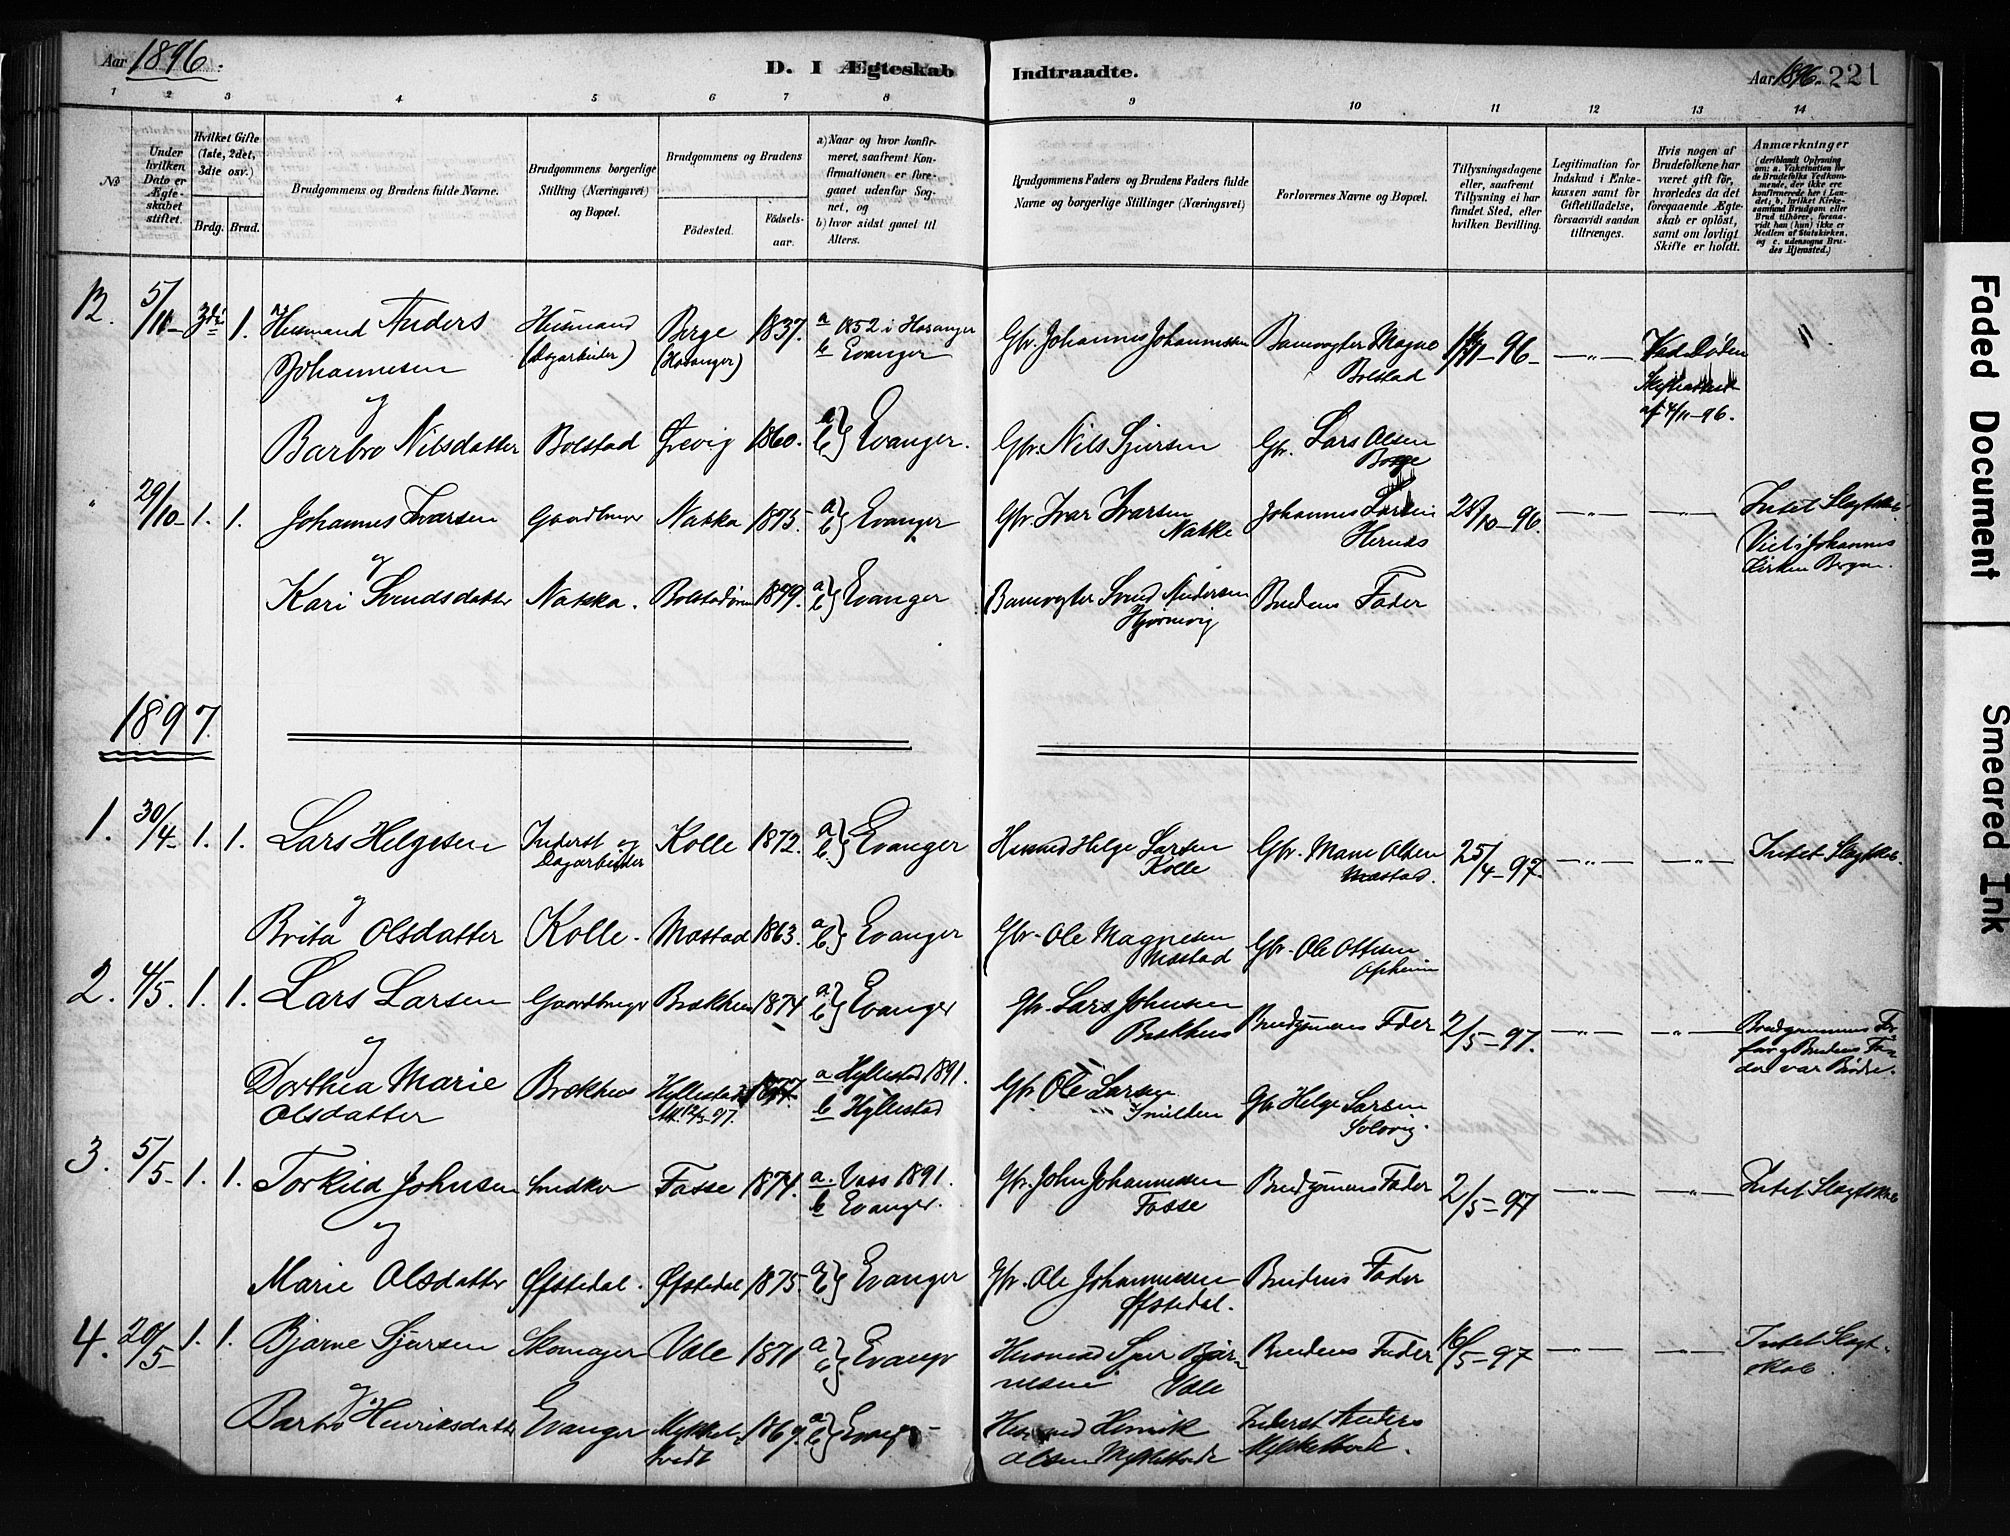 Aar 1896.
D. I Ægteskab Indtraadte.
Aar 1896. 221
1 2 3 4 5 6 7 8 9 10 11 12 13 14
№
Under hvilken Dato er Ægteskabet stiftet.
Hvilket Gifte (1ste, 2det, 3dte osv.)
Brdg. Brud.
Brudgommens og Brudens fulde Navne.
Brudgommens borgerlige Stilling (Næringsvei) og Bopæl.
Brudgommens og Brudens
Fødested.
Fødselsaar.
a) Naar og hvor konfirmeret, saafremt Konfirmationen er foregaaet udenfor Sognet, og
b) hvor sidst gaaet til Alters.
Brudgommens Faders og Brudens Faders fulde Navne og borgerlige Stillinger (Næringsvei)
Forlovernes Navne og Bopæl.
Tillysningsdagene eller, saafremt Tillysning ei har fundet Sted, efter hvilken Bevilling.
Legitimation for Indskud i Enkekassen samt for Giftetilladelse, forsaavidt saadan tiltrænges.
Hvis nogen af Brudefolkene har været gift før, hvorledes da det foregaaende Ægteskab er opløst, samt om lovligt Skifte er holdt.
Anmærkninger
(deriblandt Oplysning om: a. Vaksination for de Brudefolks Vedkommende, der ikke ere konfirmerede her i Landet; b. hvilket Kirkesamfund Brudgom eller Brud tilhører, forsaavidt han (hun) ikke er Medlem af Statskirken, og c. udensogns Brudes Hjemsted.)
12. 5/11 3die 1. Husmand Anders Johannesen Husmand (Dagarbeider) Berge (Hosanger) 1837. a 1852 i Hosanger b Evanger Gbr. Johannes Johannessen Banevogter Magne Bolstad 1/11-96 — " — Ved Døden Skifteattest af 4/11-96. "
og
Barbro Nilsdatter Bolstad Fævig 1860. a b } Evanger. Gbr. Nils Sjursen Gbr. Lars Olsen Berge
" 29/10 1. 1. Johannes Ivarsen Gaardbruger Nakka 1875 a b } Evanger Gbr. Ivar Ivarsen Nakke Johannes Larsen Hernes 25/10-96. — " — — " — Intet Slegtskab. Viet i Johannes Kirken Bergen.
og
Kari Svendsdatter Nakka. Bolstadøren 1879. a b } Evanger Banevogter Svend Andersen Hjørnevig Brudens Fader
1897.
1. 30/4 1. 1. Lars Helgesen Inderst og Dagarbeider Kolle 1872. a b } Evanger Husmd Helge Larsen Kolle Gbr. Mane Olsen Mæstad. 25/4-97 — " — — " — Intet Slegtskab.
og
Brita Olsdatter Kolle. Mæstad 1863. a b } Evanger Gbr. Ole Magnesen Mæstad Gbr. Ole Ottesen Opheim
2. 4/5. 1. 1. Lars Larsen Gaardbruger Brækhus 1874 a b } Evanger Gbr. Lars Johnsen Brækhus Brudgommens Fader 2/5-97. — " — — " — Brudgommens Farfar og Brudens Fader var Brødre.
og
Dorthea Marie Olsdatter Brækhus Hyllestad 1877 a Hyllestad 1891. b Hyllestad Gbr Ole Larsen Gbr Helge Larsen
3. 5/5 1. 1. Torkild Johnsen Snedker Fosse 1874. a. Voss 1891. b Evanger. Gbr. John Johannessen Fosse Brudgomens Fader 2/5-97 — " — — " — Intet Slegtskab
og
Marie Olsdatter Øfstedal. Øfstedal 1875 a b } Evanger Gbr. Ole Johannessen Øfstedal. Brudens Fader
4. 20/5 1. 1. Bjarne Sjursen Skomager Væle 1871 a b } Evanger Husmand Sjur Bjørnesen Væle Brudens Fader 16/5-97 — " — — " — Intet Slegtskab.
og
Barbro Henriksdatter Evanger Mykkeltvedt 1869. a b } Evanger Husmand Henrik Olsen Mykkeltvedt Inderst Anders Mykkeltvedt.
Faded Document
Smeared Ink